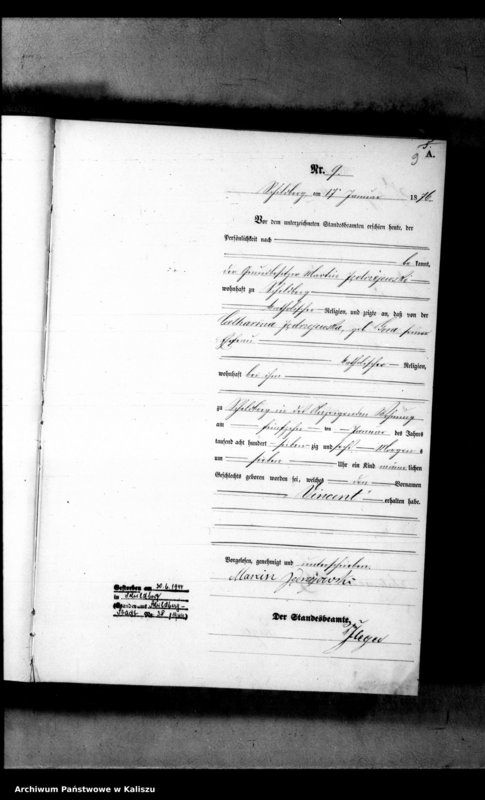 9
A.
Nr. 9.
Schildberg am 17 Januar 1876.
Vor dem unterzeichneten Standesbeamten erschien heute, der
Persönlichkeit nach
be kannt,
der Grundbesitzer Martin
wohnhaft zu Schildberg
katholischer Religion, und zeigte an, daß von der
Catharina geb. seiner
Ehefrau
katholischer Religion,
wohnhaft bei ihm
zu Schildberg in der Wohnung
am ten Januar des Jahres
tausend acht hundert sieben zig und sechs Morgens
um sieben Uhr ein Kind männ lichen
Geschlechts geboren worden sei, welches den Vornamen
Vincent
erhalten habe.
Vorgelesen, genehmigt und unterschrieben.
Marcin
Der Standesbeamte.
Gestorben am 30.6.1944
in Schildberg
Schildberg-
Stadt Nr. 38 (1944)
Archiwum Państwowe w Kaliszu